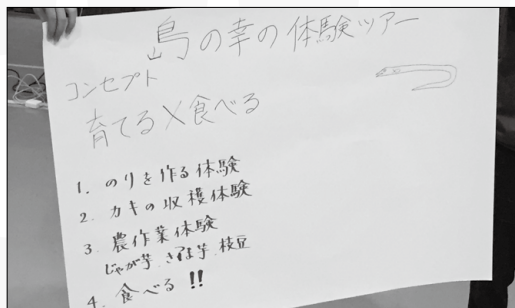 島の幸の体験ツアー
コンセプト
育てる×食べる
1. のりを作る体験
2. カキの収穫体験
3. 農作業体験
じゃが芋 さつま芋 枝豆
4. 食べる!!